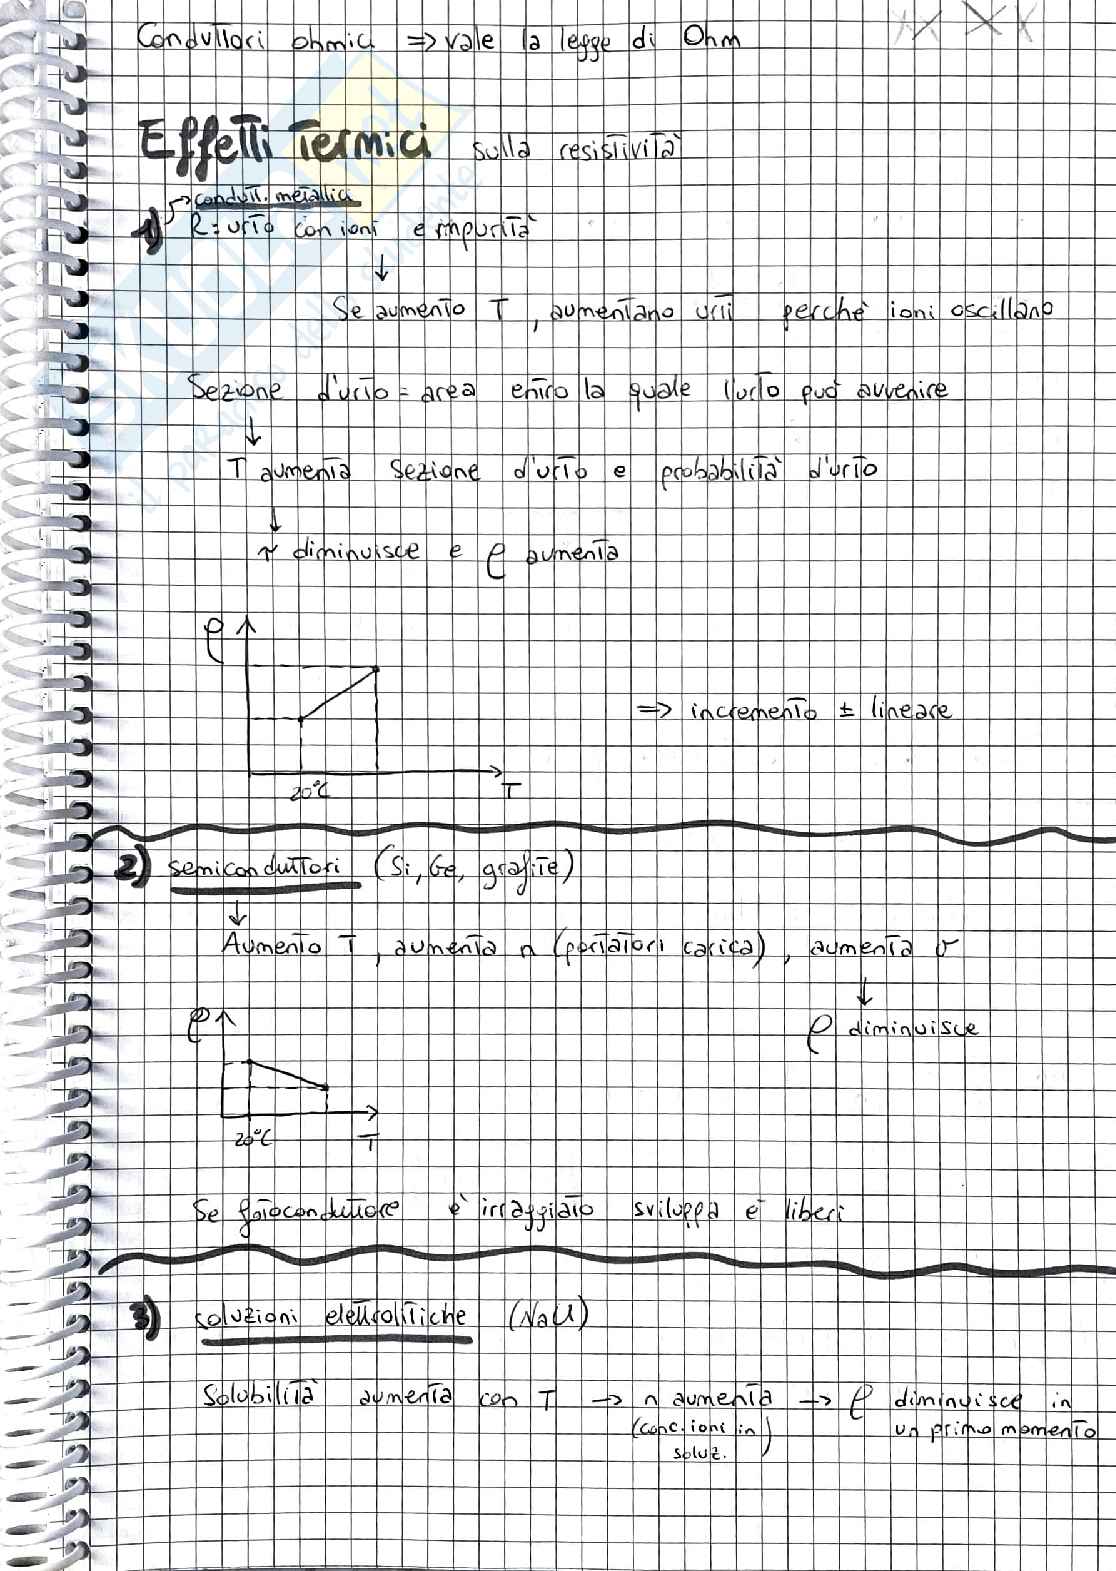 Conduttori ohmici => vale la legge di Ohm
Effetti Termici sulla resistività
→ condutt. metallici
1) R = urto con ioni e impurità
↓
Se aumento T, aumentano urti perchè ioni oscillano
Sezione d'urto = area entro la quale l'urto può avvenire
↓
T aumenta sezione d'urto e probabilità d'urto
↓
τ diminuisce e ρ aumenta
ρ
=> incremento ± lineare
20°C T
2) semiconduttori (Si, Ge, grafite)
↓
Aumento T, aumenta n (portatori carica), aumenta σ
↓
ρ
ρ diminuisce
20°C T
Se fotoconduttore è irraggiato sviluppa e⁻ liberi
3) soluzioni elettrolitiche (NaCl)
Solubilità aumenta con T → n aumenta → ρ diminuisce in
(conc. ioni in un primo momento
soluz.)
SKUOLA.net
il paradiso dello studente